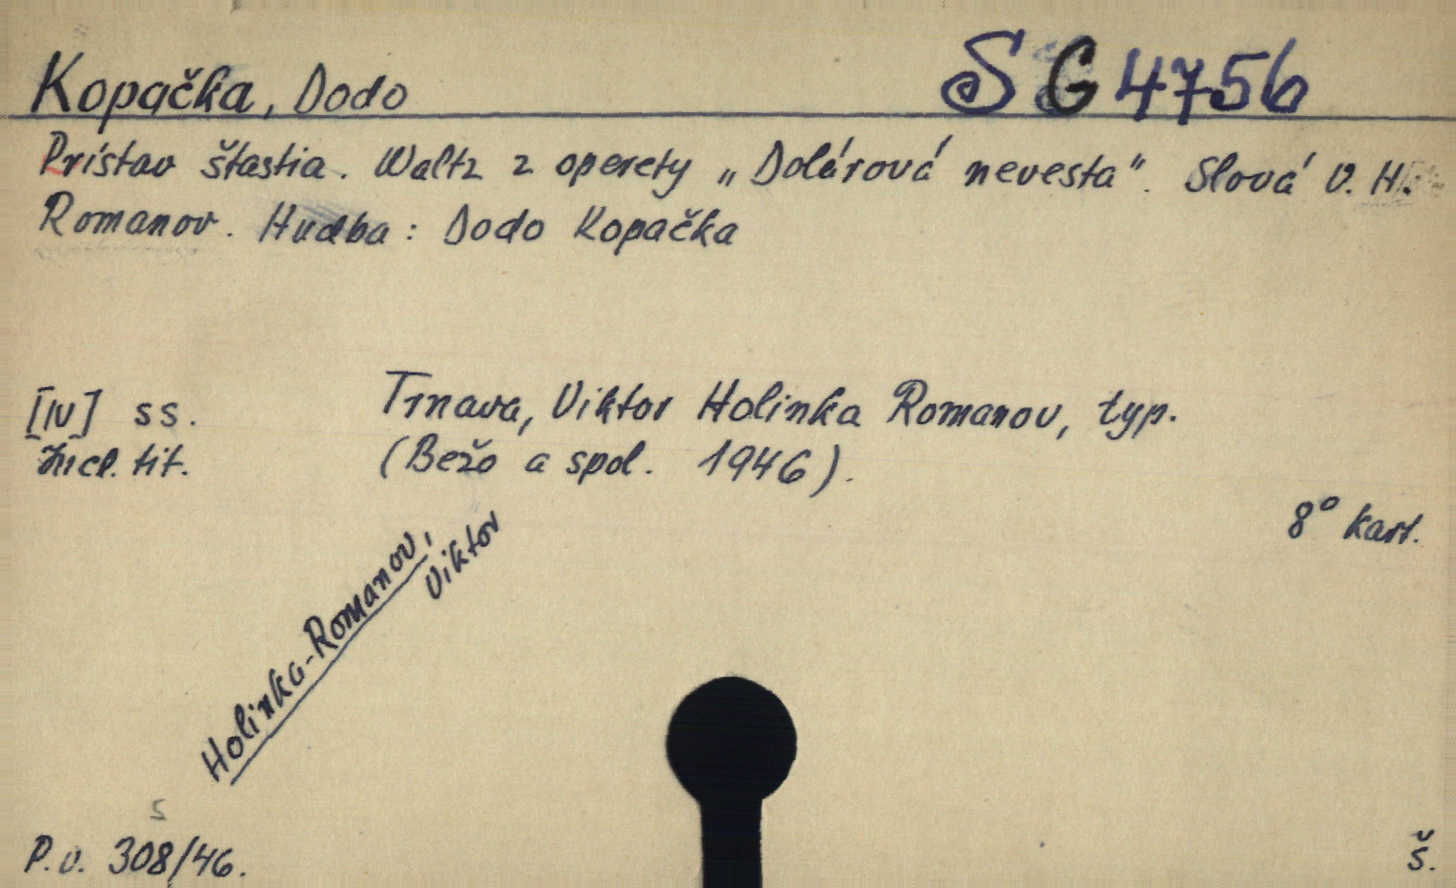 Kopačka, Dodo
SG4756
Prístav štastia. Waltz z operety „Dolárová nevesta". Slová V. H.
Romanov. Hudba: Dodo Kopačka
[IV] ss.
Incl. tit.
Trnava, Viktor Holinka Romanov, typ.
(Bežo a spol. 1946).
8° kart.
Holinka-Romanov,
Viktor
S
P.v. 308/46.
Š.